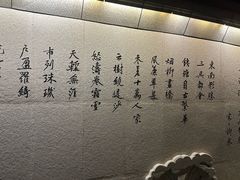 东南形胜
三吴都会
钱塘自古繁华
烟柳画桥
风帘翠幕
参差十万人家
云树绕堤沙
怒涛卷霜雪
天堑无涯
市列珠玑
户盈罗绮